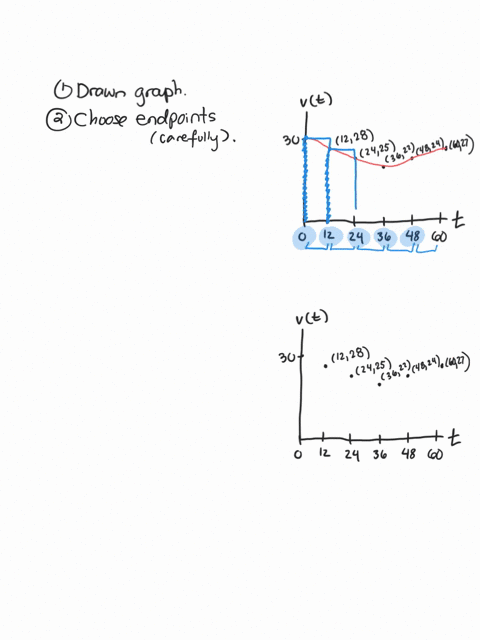 ① Drawn graph.
② Choose endpoints
(carefully).
v(t)
30
(12,28)
(24,25)
(36,22)
(48,24)
(60,27)
t
0 12 24 36 48 60
v(t)
30
(12,28)
(24,25)
(36,22)
(48,24)
(60,27)
t
0 12 24 36 48 60